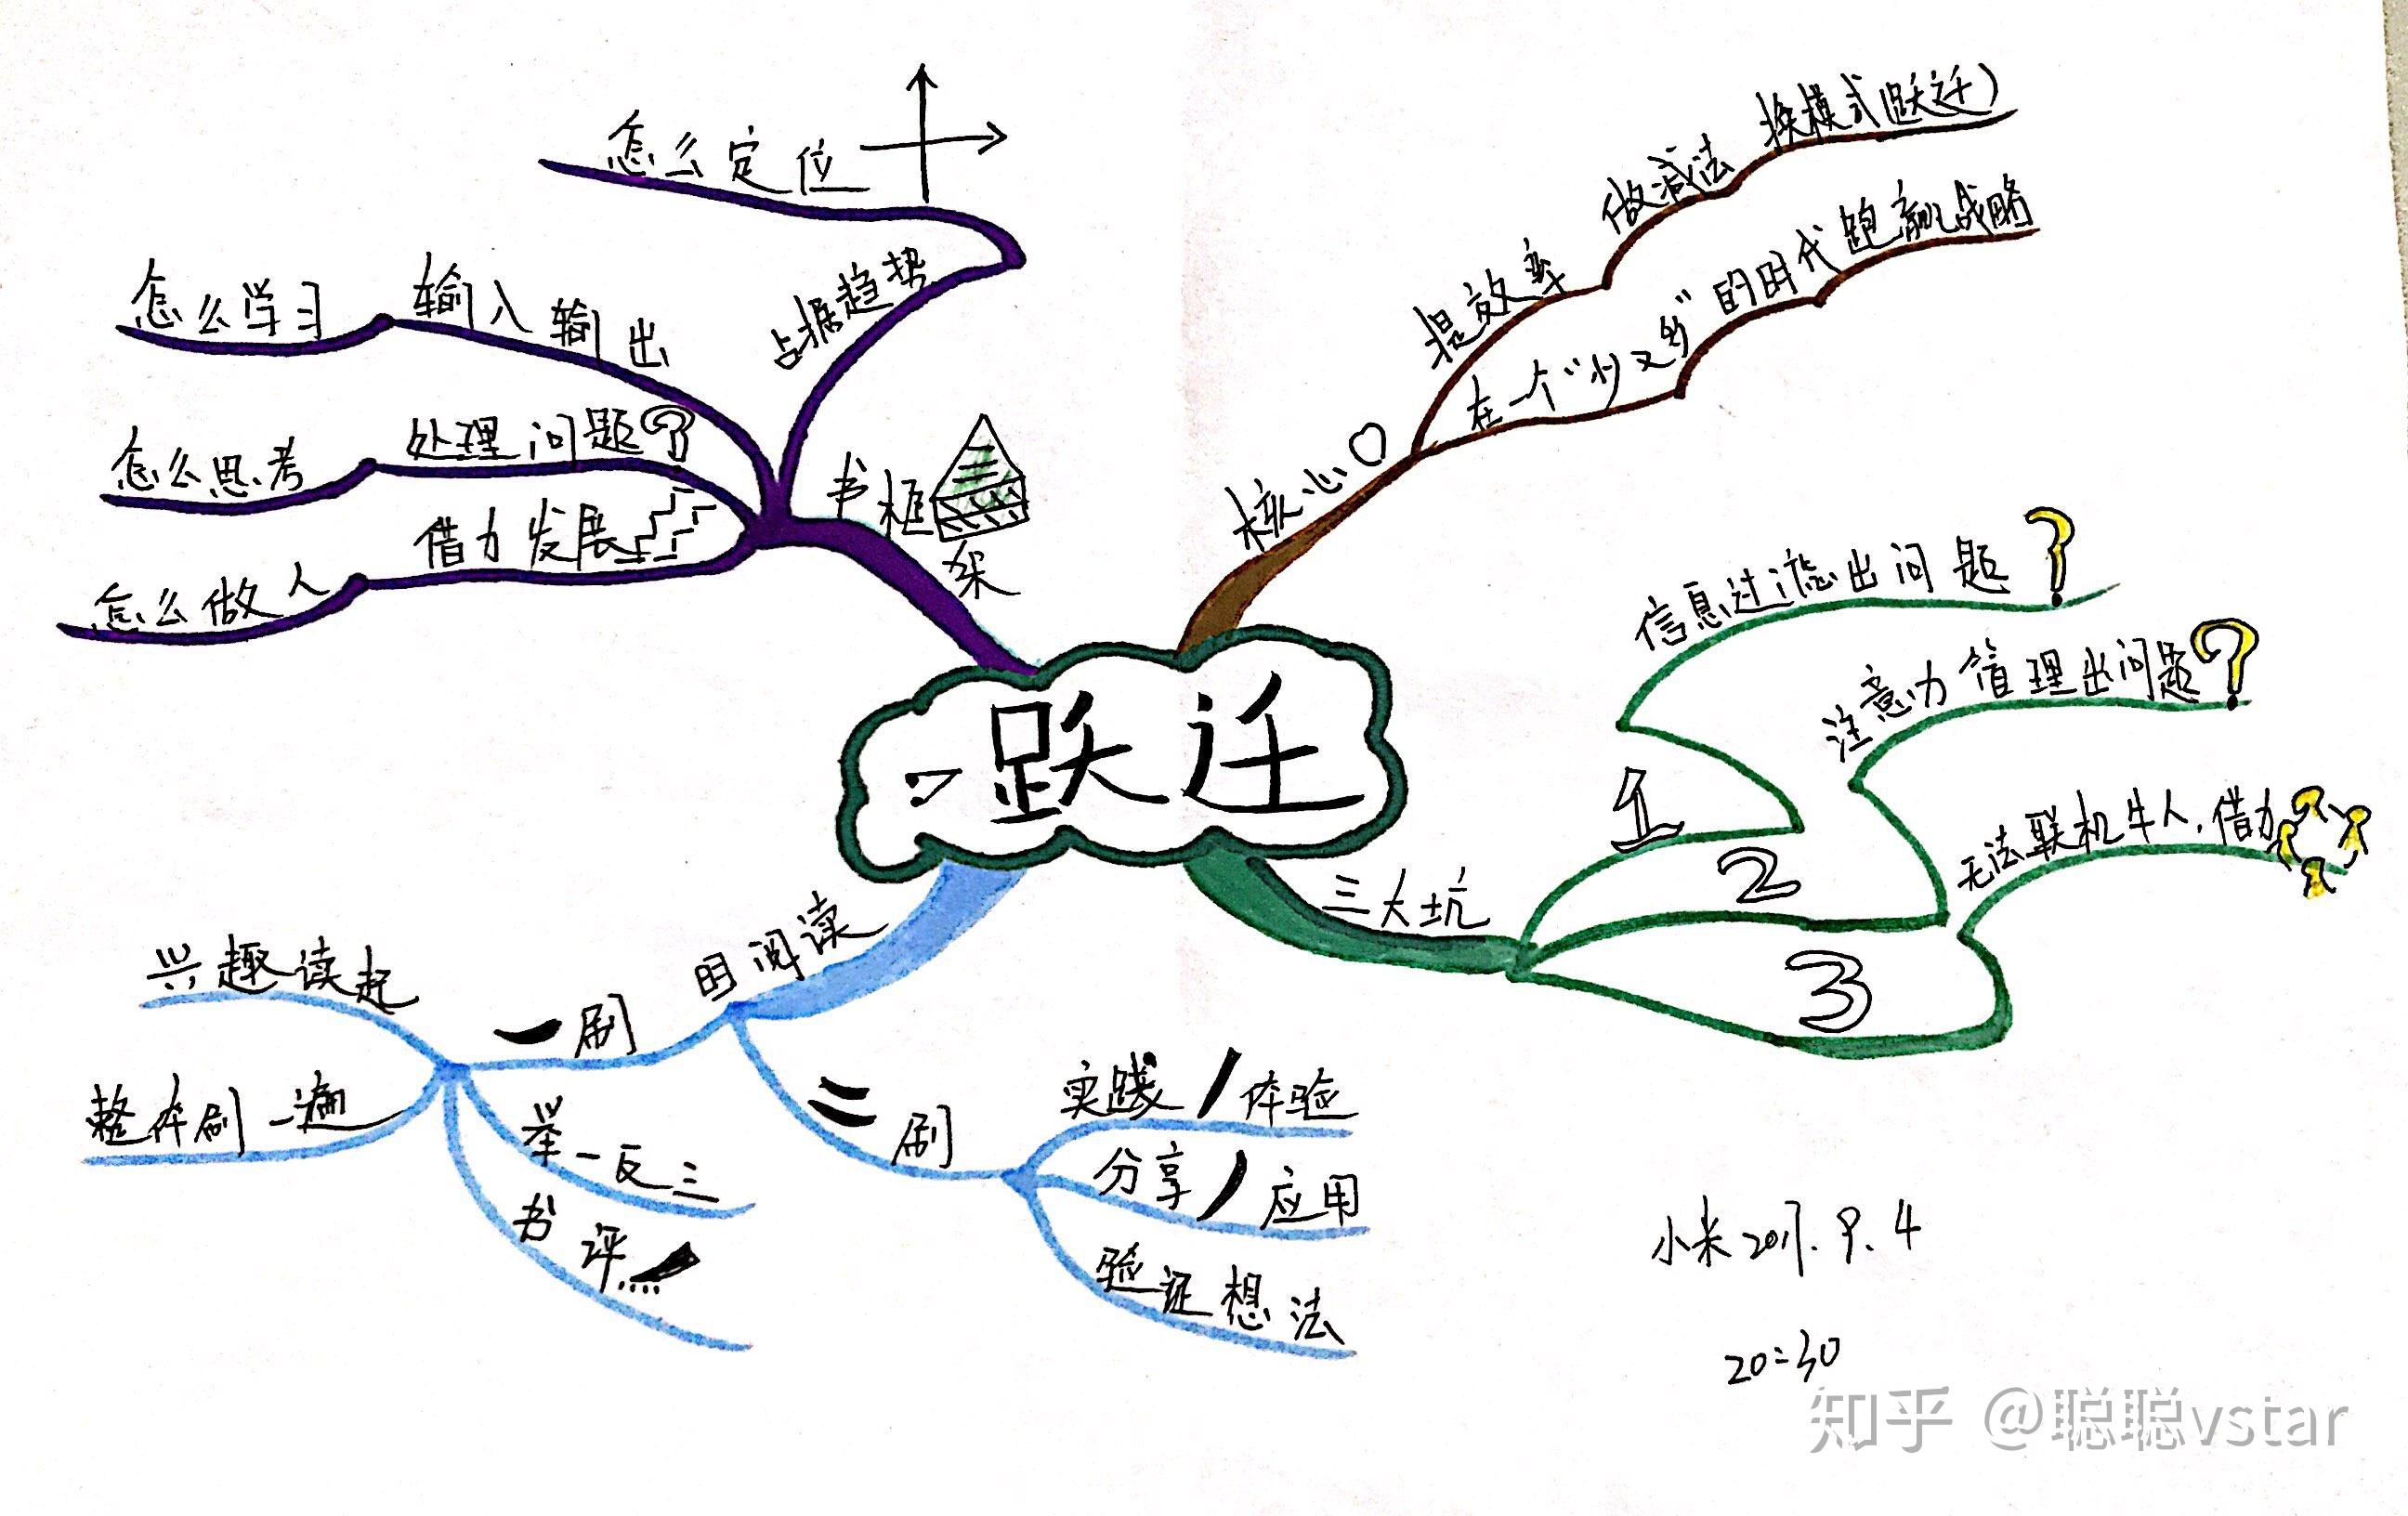 跃迁
核心
提效率 做减法 换模式(跃迁)
在一个“少又多”的时代跑赢战略
三大坑
1
信息过滤出问题?
2
注意力管理出问题?
3
无法联机牛人,借力
阅读
一刷
兴趣读起
整体刷一遍
举一反三
书评....
二刷
实践/体验
分享/应用
验证想法
书框架
占据趋势
怎么定位
输入输出
怎么学习
处理问题?
怎么思考
借力发展
怎么做人
小米2017.9.4
20:30
知乎 @聪聪vstar